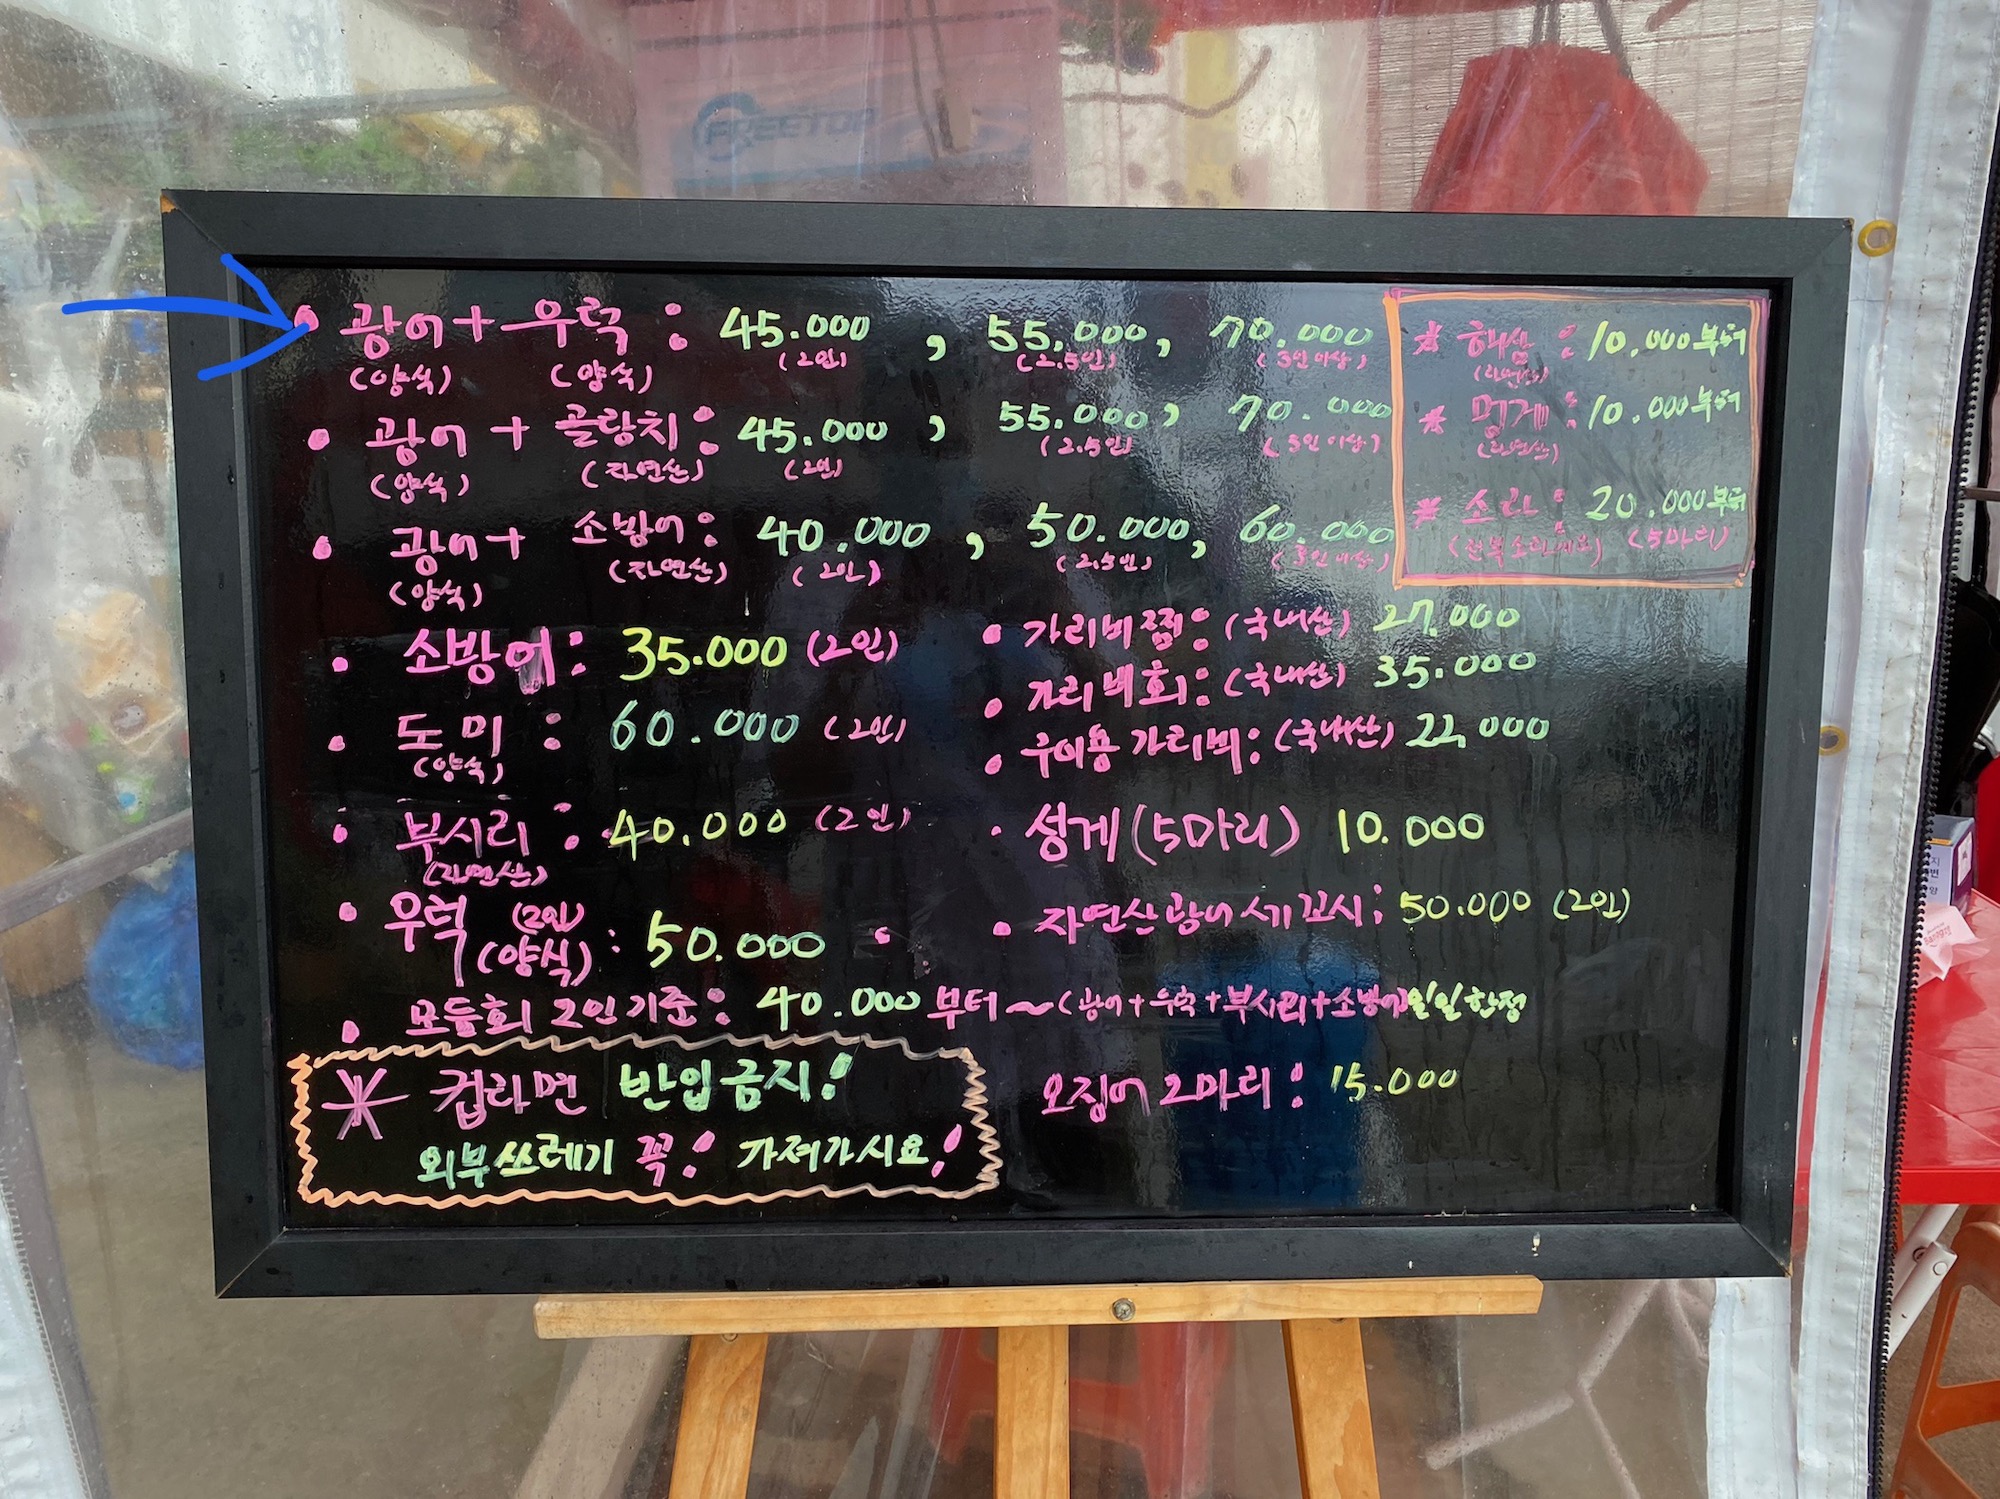 FREETOP
• 광어 + 우럭 : 45.000 , 55.000, 70.000
(양식) (양식) (2인) (2.5인) (3인 이상)
• 광어 + 골랑치 : 45.000 , 55.000, 70.000
(양식) (자연산) (2인) (2.5인) (3인 이상)
• 광어 + 소방어 : 40.000 , 50.000, 60.000
(양식) (자연산) (2인) (2.5인) (3인 이상)
• 소방어 : 35.000 (2인)
• 도미 : 60.000 (2인)
(양식)
• 부시리 : 40.000 (2인)
(자연산)
• 우럭 (2인) (양식) : 50.000
• 모듬회 2인 기준 : 40.000 부터 ~ (광어 + 우럭 + 부시리 + 소방어) 일일 한정
* 컵라면 반입금지!
외부쓰레기 꼭! 가져가시요!
* 해삼 : 10.000부터
(자연산)
* 멍게 : 10.000부터
(자연산)
* 소라 : 20.000부터
(5마리)
• 가리비찜 : (국내산) 27.000
• 가리비회 : (국내산) 35.000
• 구이용 가리비 : (국내산) 22.000
• 성게 (5마리) 10.000
• 자연산 광어 세꼬시 : 50.000 (2인)
오징어 2마리 : 15.000